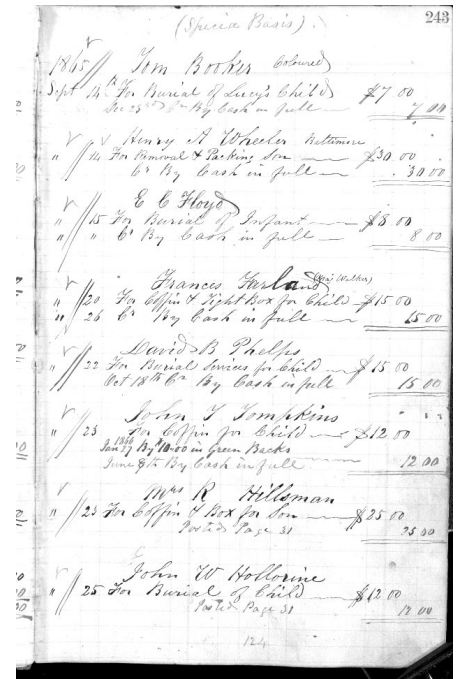 243
(Specia Basis).
1865 Tom Booker Coloured
Sept 14 For Burial of Lucy's Child $7 00
Dec 23rd Cr By Cash in full 7 00
Henry A Wheeler Baltimore
" 14 For Removal & Packing Son $30 00
Cr By Cash in full 30 00
E C Floyd
" 15 For Burial of Infant $8 00
" " Cr By Cash in full 8 00
Frances Farland (Maj Walker)
" 20 For Coffin & Tight Box for Child $15 00
" 26 Cr By Cash in full 15 00
David B Phelps
" 22 For Burial Services for Child $15 00
Oct 18th Cr By Cash in full 15 00
John T Tompkins
" 23 For Coffin for Child $12 00
1866
Jan 27 By $10.00 in Green Backs
June 9th By Cash in full 12 00
Mrs R Hillsman
" 23 For Coffin & Box for Son $25 00
Posted Page 31 25 00
John W Hollorine
" 25 For Burial of Child $12 00
Posted Page 31 12 00
124